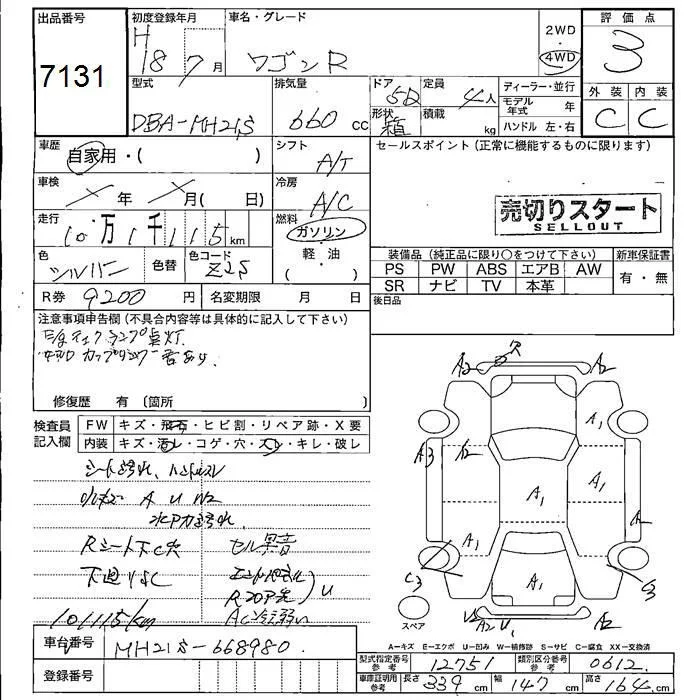 出品番号
7131
初度登録年月
H
18 7 月
車名・グレード
ワゴンR
2WD
・
4WD
評価点
3
外装 内装
C C
型式
DBA-MH21S
排気量
660 cc
ドア
5D
定員
4人
形状
箱
積載
kg
ディーラー・並行
モデル年式 年
ハンドル 左・右
車歴
自家用・( )
シフト
A/T
セールスポイント (正常に機能するものに限ります)
車検
年 月( 日)
冷房
A/C
売切りスタート
SELLOUT
走行
10万1千115km
燃料
ガソリン
軽・油
( )
色
シルバー
色替
色コード
Z2S
装備品 (純正品に限り○をつけて下さい)
新車保証書
PS PW ABS エアB AW
有・無
SR ナビ TV 本革
R券 9200 円
名変期限 月 日
後日品
注意事項申告欄 (不具合内容等は具体的に記入して下さい)
E/gチェックランプ点灯
4WD カップリング音あり.
修復歴 有 〔箇所 〕
検査員
記入欄
FW
キズ・飛石・ヒビ割・リペア跡・X要
内装
キズ・汚レ・コゲ・穴・スレ・キレ・破レ
シート汚れ, ハンドルスレ
小キズ A U W2
水アカ汚れ.
Rシート下C穴
セル異音
下廻りサビC
U
A C 弱い
101115km
A2 穴 A2
A1
A3 A2
A1 A1
A
A1
C3 A1 C3
スペア
A2 U1 A2
A=キズ E=エクボ U=凹み W=補修跡 S=サビ C=腐食 XX=交換済
車台番号
MH21S-668980.
登録番号
型式指定番号
参考
12751
類別区分番号
参考
0612
車庫証明用
参考
長さ 339 cm 幅 147 cm 高さ 164 cm